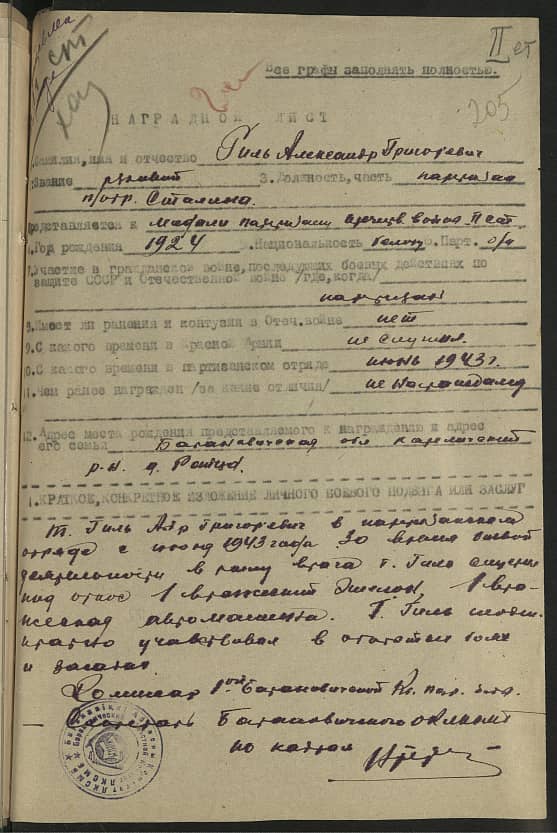 II ст
Все графы заполнять полностью.
205
НАГРАДНОЙ ЛИСТ
Фамилия, имя и отчество Гиль Александр Григорьевич
Звание рядовой 3. Должность, часть партизан
п/отр. Сталина.
Представляется к медали партизану Отечеств. войны II ст.
Год рождения 1924 Национальность Парт. б/п
Участие в гражданской войне, последующих боевых действиях по
защите СССР и Отечественной войне /где, когда/
партизан
8. Имеет ли ранения и контузии в Отеч. войне нет
9. С какого времени в Красной Армии не служил.
10. С какого времени в партизанском отряде июнь 1943 г.
11. Чем ранее награжден /за какие отличия/ не награждался
12. Адрес места рождения представляемого к награждению и адрес
его семьи Барановичская обл
р-н. д.
1. КРАТКОЕ, КОНКРЕТНОЕ ИЗЛОЖЕНИЕ ЛИЧНОГО БОЕВОГО ПОДВИГА ИЛИ ЗАСЛУГ
Т. Гиль Григорьевич в партизанском
отряде с июня 1943 года За время боевой
деятельности в тылу врага т. Гиль спустил
под откос 1 вражеский эшелон, 1 вра-
жеская автомашина. Т. Гиль неодно-
кратно участвовал в открытых боях
и засадах
Комиссар Барановичской
Секретарь Барановичского
по кадрам